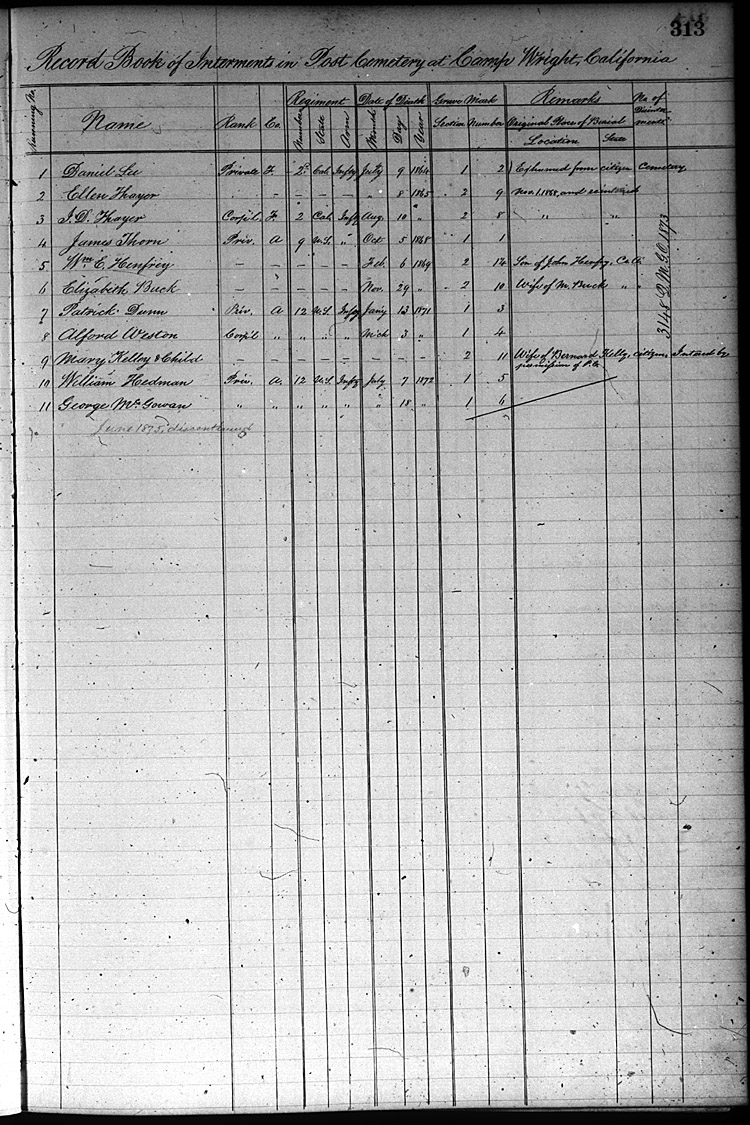 313
Record Book of Interments in Post Cemetery at Camp Wright, California
Running No. Name Rank Co. Regiment Number State Arm Date of Death Month Day Year Grave Mark Section Number Remarks Original Place of Burial Location State No. of
1 Daniel Lee Private F. 2d Cal. Infty July 9 1864 1 2 Exhumed from citizen Cemetery
2 Ellen Thayer — — — — — „ 8 1865 2 9 Nov. 1. 1868, and reinterred
3 J. D. Thayer Corp'l F. 2 Cal. Infty Aug. 10 „ 2 8 „ „
4 James Thorn Priv. A 9 U.S. „ Oct 5 1868 1 1
5 Wm. E. Henfrey — — — — — Feb. 6 1869 2 14 Son of John Henfry, Cal.
6 Elizabeth Buck — — — — — Nov. 29 „ 2 10 Wife of M. Buck „ „
7 Patrick Dunn Priv. A 12 U.S. Infty Jany 13 1871 1 3
8 Alford Weston Corp'l „ „ „ „ Mich 3 „ 1 4
9 Mary Kelly & Child — — — — — 2 11 Wife of Bernard Kelly, citizen, Interred by
permission of P.C.
10 William Hedman Priv. A. 12 U.S. Infty July 7 1872 1 5
11 George McGowan „ „ „ „ „ „ 18 „ 1 6
June 1875, discontinued
3148 Q.M.G.O. 1873